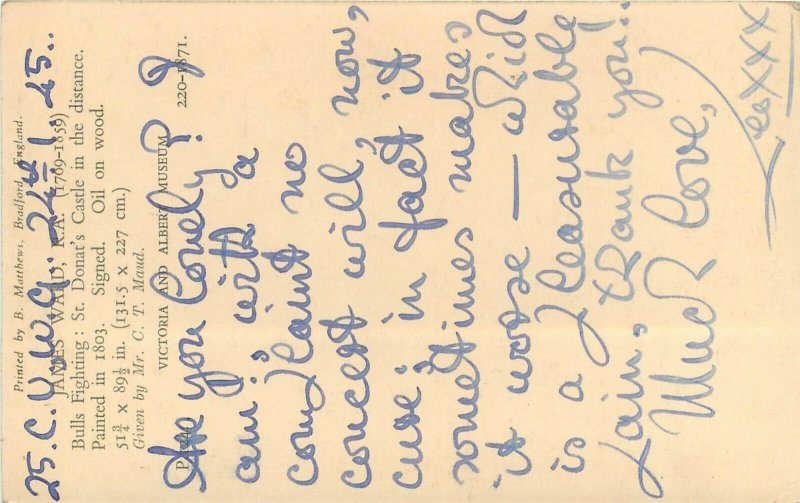 Printed by B. Matthews, Bradford, England.
25. C. U. W. G. 24th. 1. 45..
JAMES WARD, R.A. (1769-1859)
Bulls Fighting : St. Donat's Castle in the distance.
Painted in 1803. Signed. Oil on wood.
51¾ x 89½ in. (131.5 x 227 cm.)
Given by Mr. C. T. Maud.
VICTORIA AND ALBERT MUSEUM
220-1871.
Are you Lonely? I
am; with a
complaint no
concert will, now,
cure: in fact it
sometimes makes
it worse — which
is a pleasurable
pain. thank you!..
Much Love,
XXX